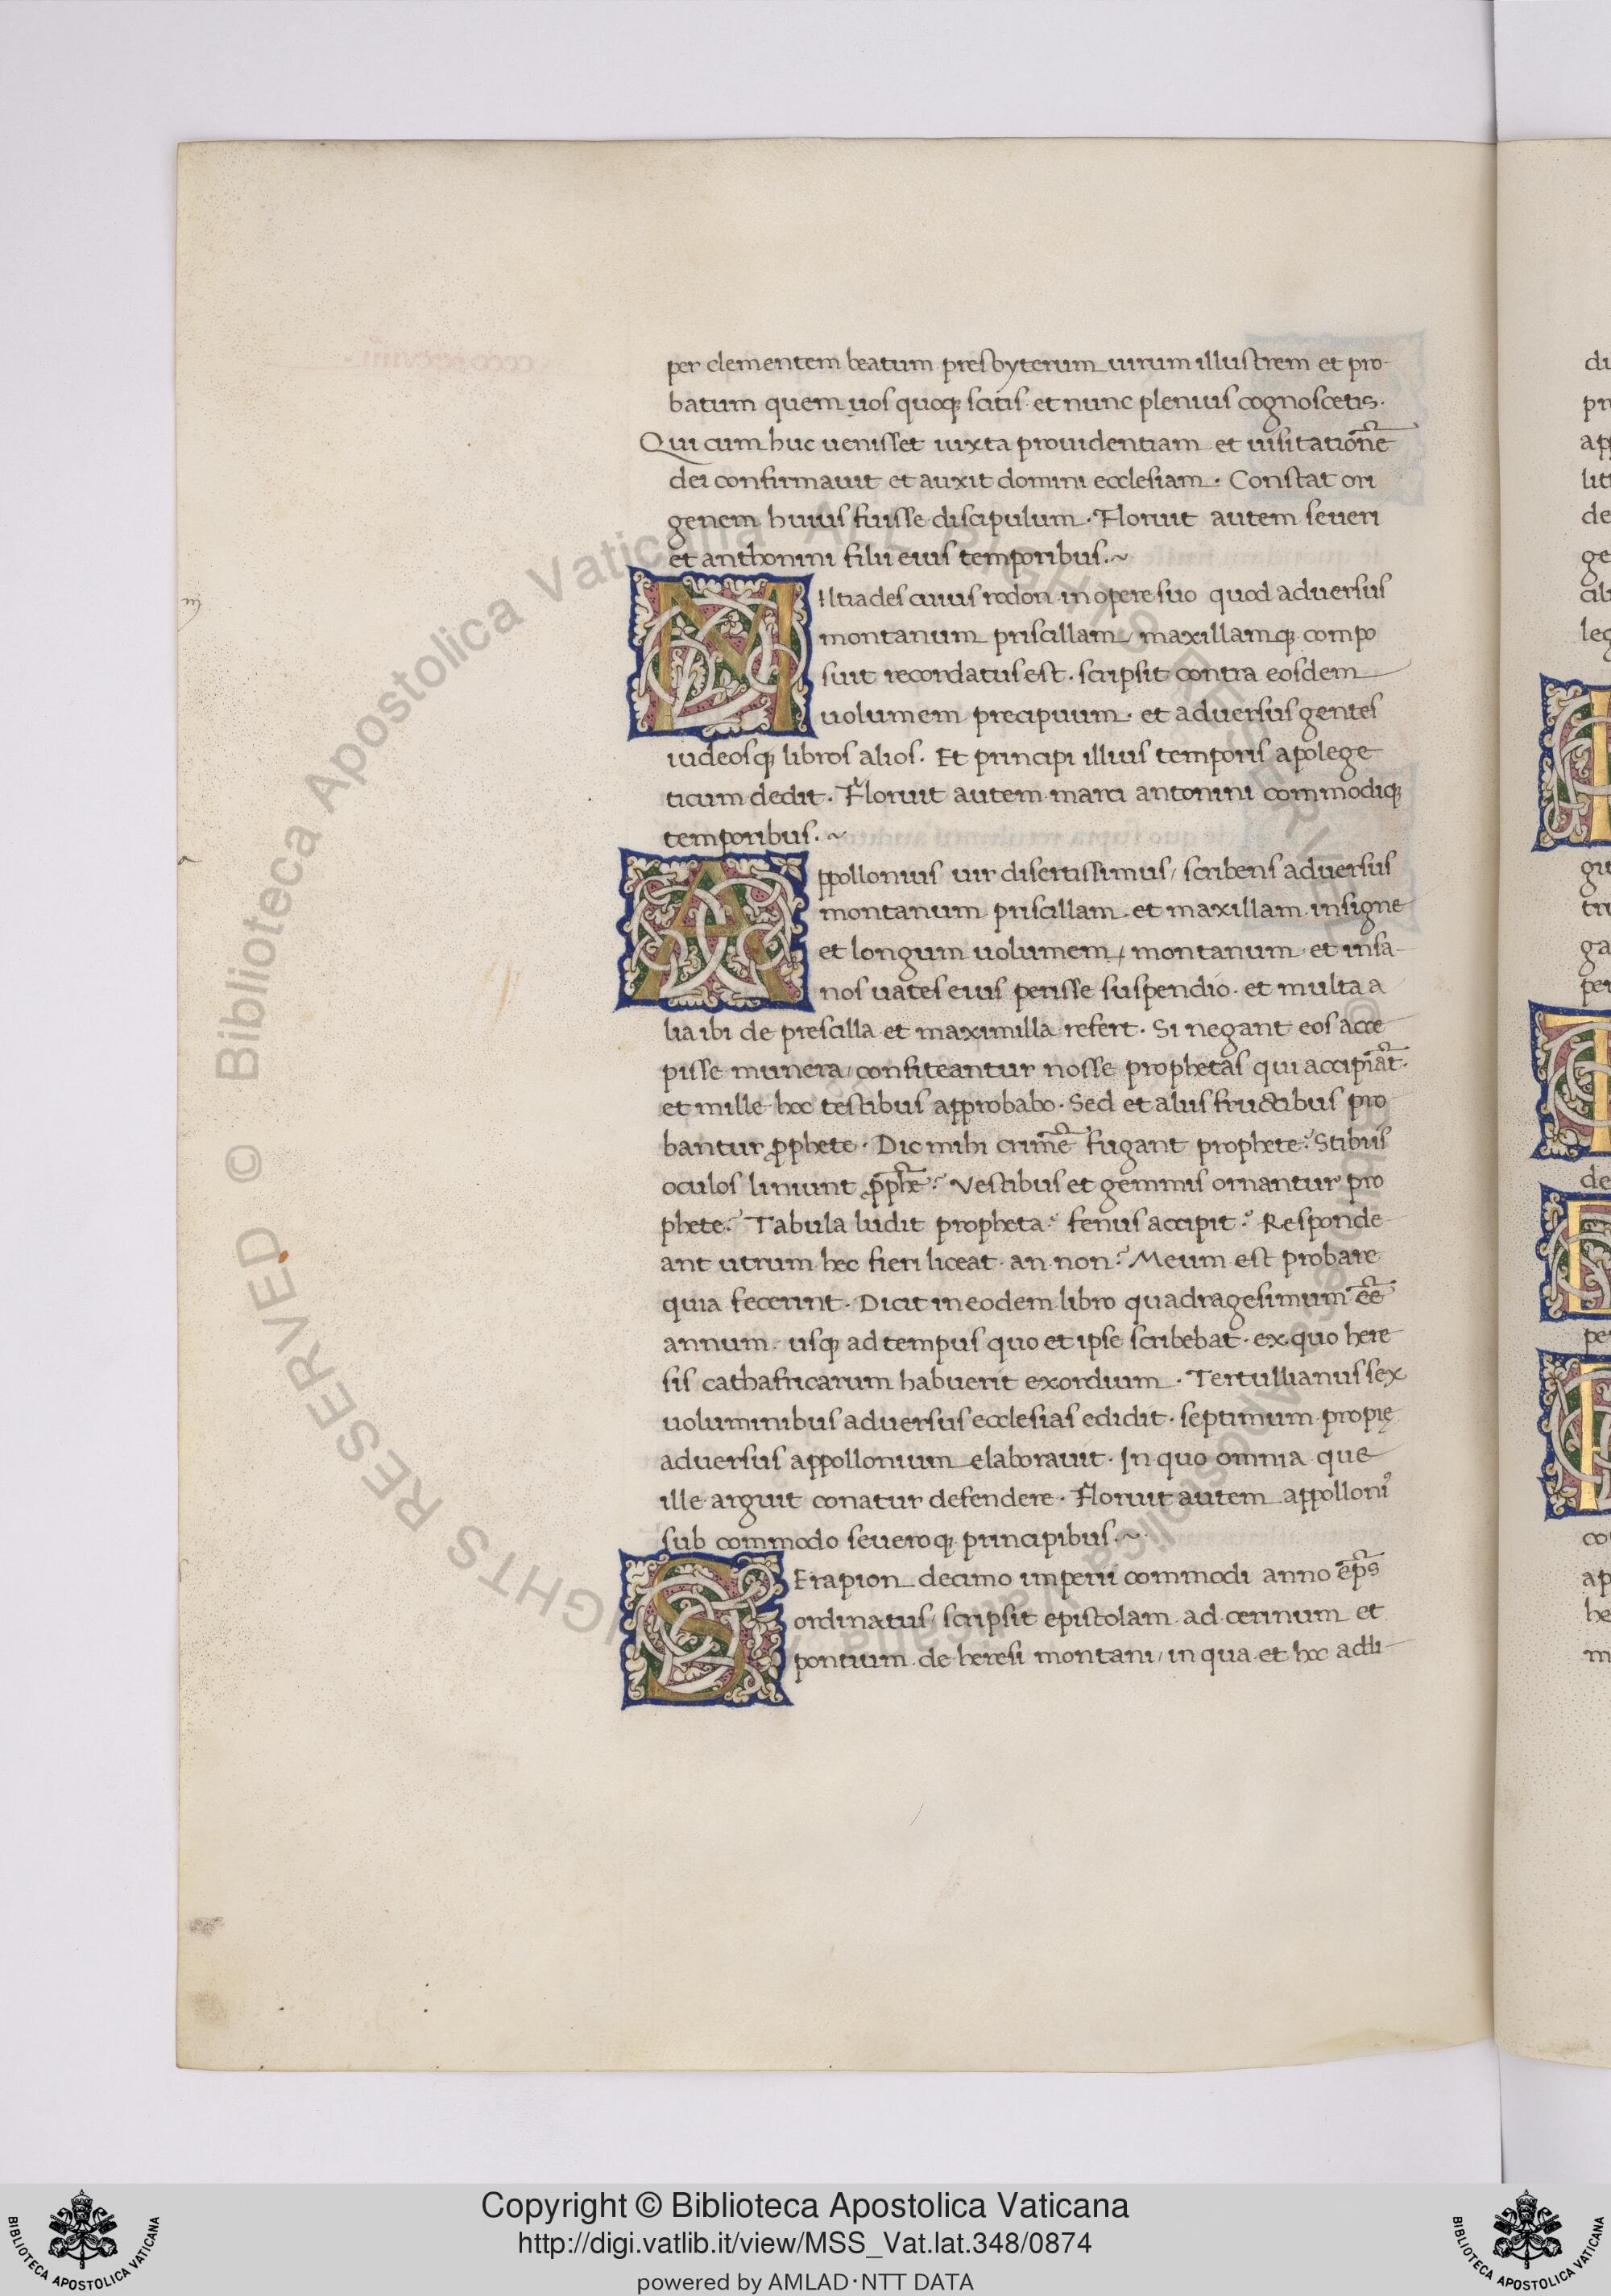 per clementem beatum presbyterum uirum illustrem et pro-
batum quem uos quoq; scitis et nunc plenius cognoscetis.
Qui cum huc uenisset iuxta prouidentiam et uisitationē
dei confirmauit et auxit domini ecclesiam. Constat ori
genem huius fuisse discipulum. Floruit autem seueri
et anthonini filii eius temporibus.~
MIltiades cuius rodon in opere suo quod aduersus
montanum priscillam / maxillamq; compo
suit recordatus est. scripsit contra eosdem
uolumem precipuum. et aduersus gentes
iudeosq; libros alios. Et principi illius temporis apolege
ticum dedit. Floruit autem marci antonini commodiq;
temporibus.~
Appollonius uir disertissimus / scribens aduersus
montanum priscillam et maxillam insigne
et longum uolumem / montanum et insa-
nos uates eius perisse suspendio. et multa a
lia ibi de prescilla et maximilla refert. Si negant eos acce
pisse munera / confiteantur nosse prophetas qui accipiāt.
et mille hoc testibus approbabo. Sed et aliis fructibus pro
bantur ꝓphete. Dic mihi crimē fugant prophete? Stibiis
oculos liniunt ꝓph̄e? Vestibus et gemmis ornantur pro
phete? Tabula ludit propheta? fenus accipit? Responde
ant utrum hec fieri liceat an non? Meum est probare
quia fecerint. Dicit in eodem libro quadragesimum ēe
annum usq; ad tempus quo et ipse scribebat. ex quo here
sis cathafricarum habuerit exordium. Tertullianus sex
uoluminibus aduersus ecclesias edidit. septimum propię
aduersus appollonium elaborauit. In quo omnia que
ille arguit conatur defendere. Floruit autem appolloniꝰ
sub commodo seueroq; principibus.~
SErapion decimo imperii commodi anno ep̄s
ordinatus / scripsit epistolam ad cerinum et
pontium de heresi montani / in qua et hoc addi-
di
pr
ap
lit
de
ge
cib
leg
gu
tru
ga
per
de
pe
co
ap
he
m
© Biblioteca Apostolica Vaticana ALL RIGHTS RESERVED
Copyright © Biblioteca Apostolica Vaticana
http://digi.vatlib.it/view/MSS_Vat.lat.348/0874
powered by AMLAD·NTT DATA
BIBLIOTECA APOSTOLICA VATICANA
BIBLIOTECA APOSTOLICA VATICANA